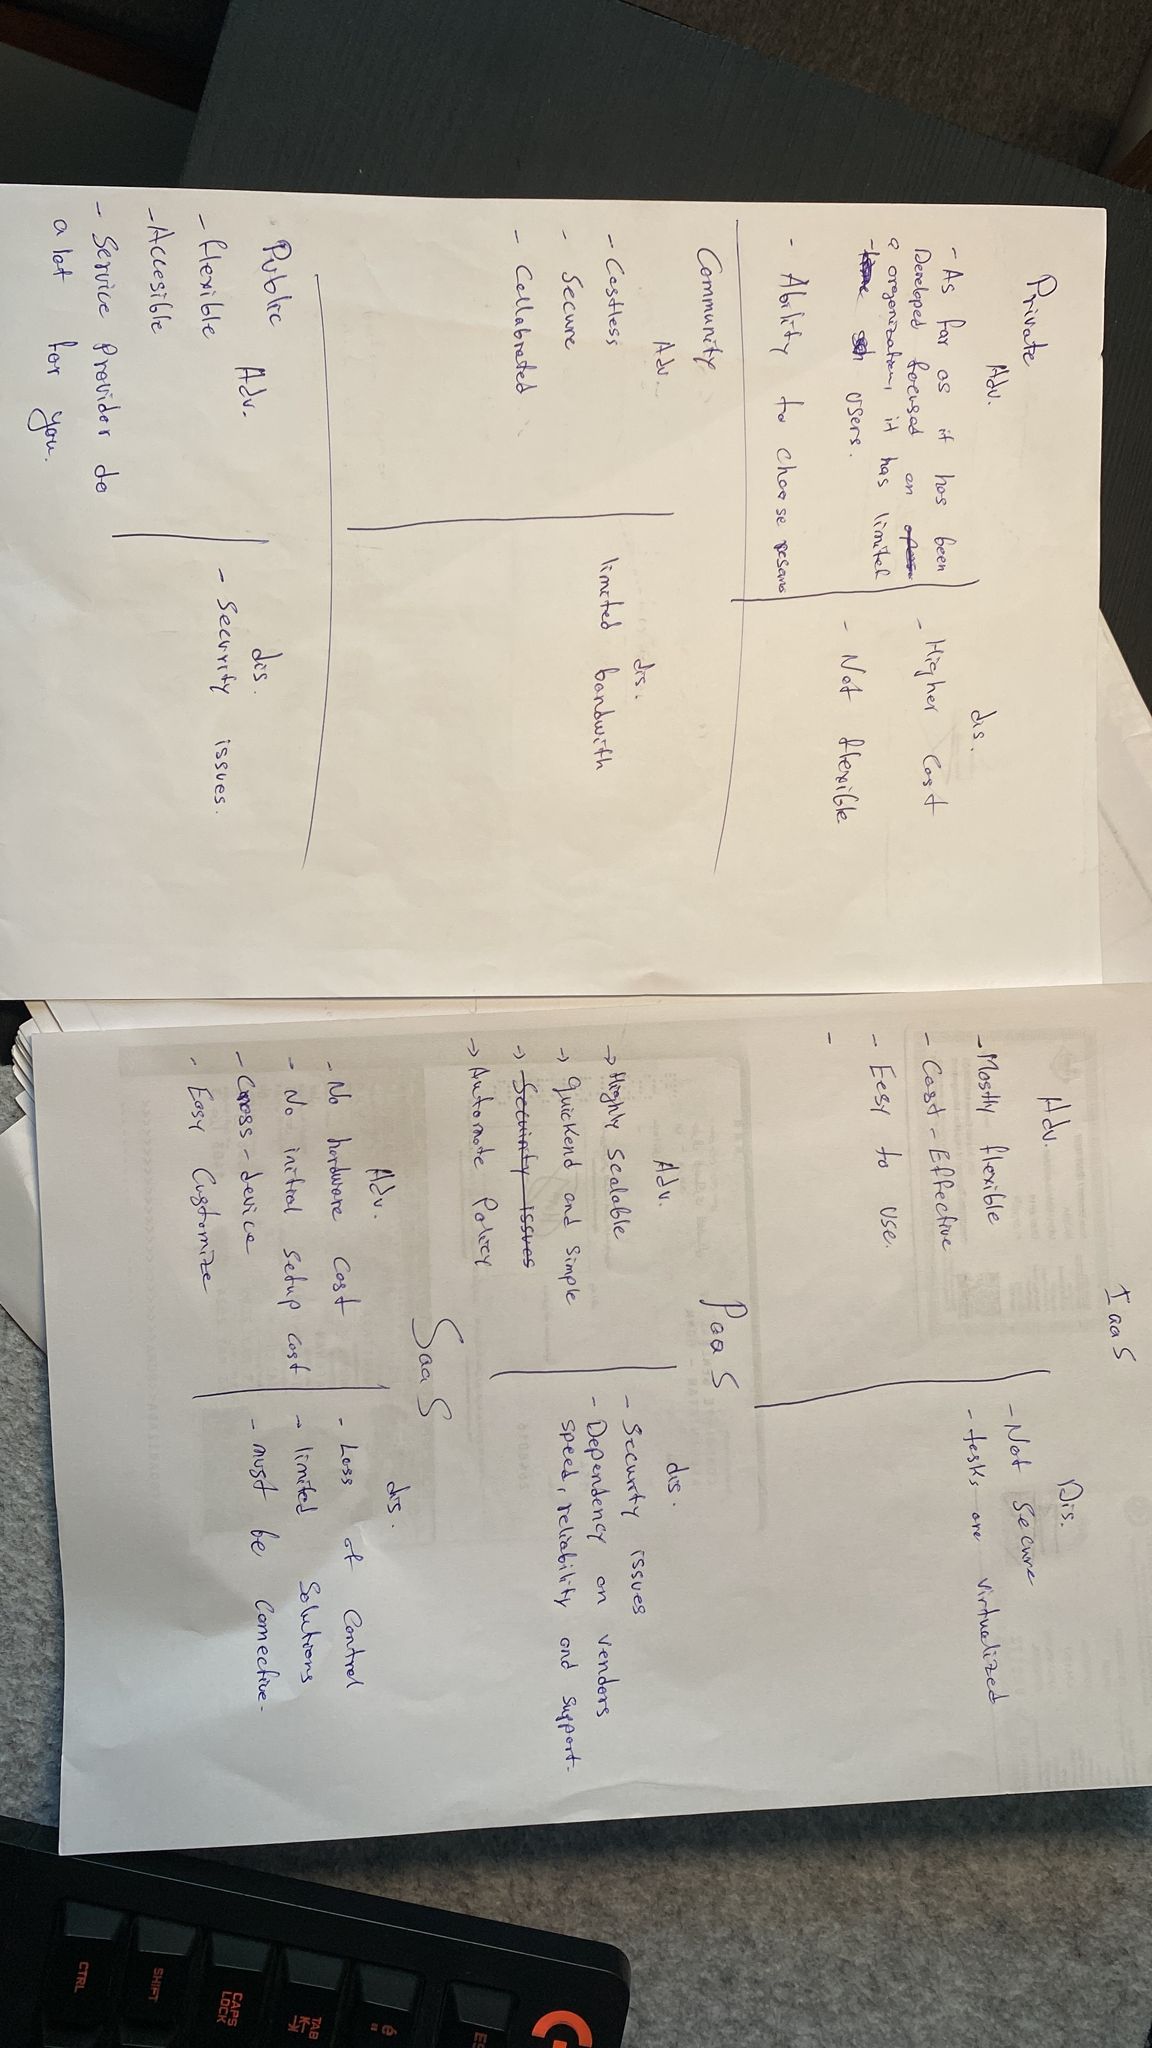 Private
Adv.
dis.
- As far as it has been
Developed focused on
a organization, it has limited
users.
- Ability to choose
- Higher cost
- Not flexible
Community
Adv.
dis.
- Costless
- Secure
- Collabrated
limited bandwith
Public
Adv.
dis.
- flexible
- Accesible
- Service Provider do
a lot for you.
- Security issues.
IaaS
Adv.
Dis.
- Mostly flexible
- Cost-Effective
- Eesy to use.
-
- Not Secure
- tasks are virtualized
PaaS
Adv.
dis.
→ Highly Scalable
→ Quickend and Simple
→ Security issues
→ Automate Policy
- Security issues
- Dependency on vendors
speed, reliability and support.
SaaS
Adv.
dis.
- No hardware Cost
- No initial Setup cost
- Cross-device
- Easy Customize
- Loss of Control
- limited Solutions
- must be Connective.
CTRL
SHIFT
CAPS
LOCK
TAB